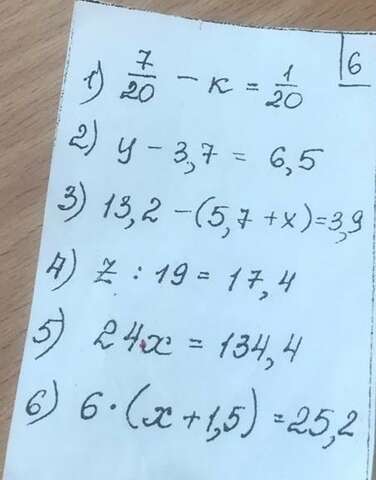 6
1) 7/20 - к = 1/20
2) y - 3,7 = 6,5
3) 13,2 - (5,7 + x) = 3,9
4) z : 19 = 17,4
5) 24·x = 134,4
6) 6·(x + 1,5) = 25,2